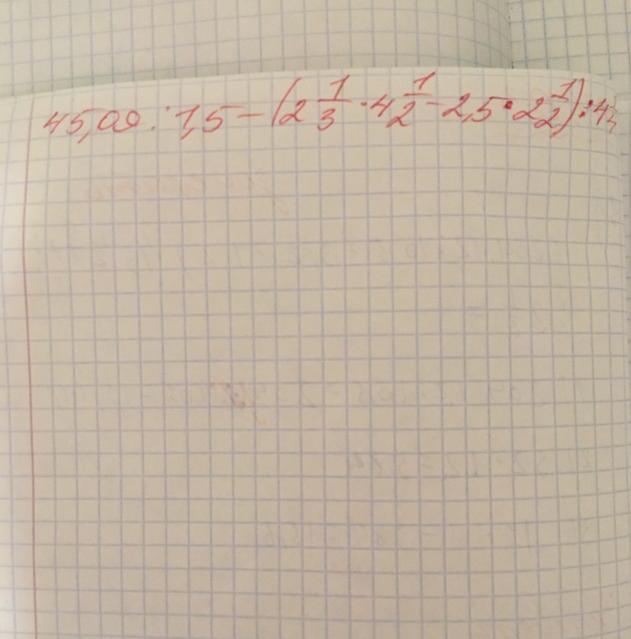 45,09 : 1,5 - (2 1/3 · 4 1/2 - 2,5 · 2 1/2) : 4